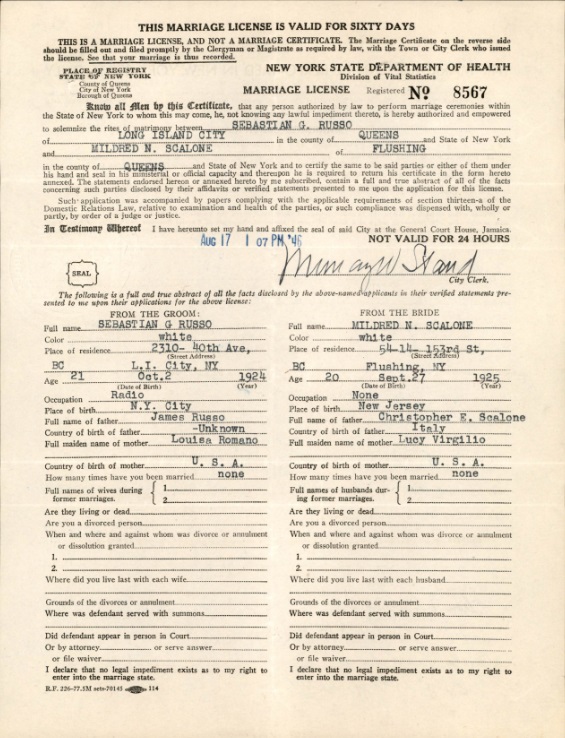 THIS MARRIAGE LICENSE IS VALID FOR SIXTY DAYS
THIS IS A MARRIAGE LICENSE, AND NOT A MARRIAGE CERTIFICATE. The Marriage Certificate on the reverse side
should be filled out and filed promptly by the Clergyman or Magistrate as required by law, with the Town or City Clerk who issued
the license. See that your marriage is thus recorded.
PLACE OF REGISTRY
STATE OF NEW YORK
County of Queens
City of New York
Borough of Queens
NEW YORK STATE DEPARTMENT OF HEALTH
Division of Vital Statistics
MARRIAGE LICENSE Registered No 8567
Know all Men by this Certificate, that any person authorized by law to perform marriage ceremonies within
the State of New York to whom this may come, he, not knowing any lawful impediment thereto, is hereby authorized and empowered
to solemnize the rites of matrimony between SEBASTIAN G. RUSSO
of LONG ISLAND CITY in the county of QUEENS and State of New York
and MILDRED N. SCALONE of FLUSHING
in the county of QUEENS and State of New York and to certify the same to be said parties or either of them under
his hand and seal in his ministerial or official capacity and thereupon he is required to return his certificate in the form hereto
annexed. The statements endorsed hereon or annexed hereto by me subscribed, contain a full and true abstract of all of the facts
concerning such parties disclosed by their affidavits or verified statements presented to me upon the application for this license.
Such application was accompanied by papers complying with the applicable requirements of section thirteen-a of the
Domestic Relations Law, relative to examination and health of the parties, or such compliance was dispensed with, wholly or
partly, by order of a judge or justice.
In Testimony Whereof I have hereunto set my hand and affixed the seal of said City at the General Court House, Jamaica.
AUG 17 1 07 PM '46 NOT VALID FOR 24 HOURS
SEAL
City Clerk.
The following is a full and true abstract of all the facts disclosed by the above-named applicants in their verified statements pre-
sented to me upon their applications for the above license:
FROM THE GROOM:
Full name SEBASTIAN G RUSSO
Color white
Place of residence 2310- 40th Ave,
(Street Address)
BC L.I. City, NY
Age 21 Oct.2 1924
(Date of Birth) (Year)
Occupation Radio
Place of birth N.Y. City
Full name of father James Russo
Country of birth of father -Unknown
Full maiden name of mother Louisa Romano
Country of birth of mother U. S. A.
How many times have you been married none
Full names of wives during
former marriages. 1
2
Are they living or dead
Are you a divorced person
When and where and against whom was divorce or annulment
or dissolution granted
1.
2.
Where did you live last with each wife
Grounds of the divorces or annulment
Where was defendant served with summons
Did defendant appear in person in Court
Or by attorney or serve answer
or file waiver
I declare that no legal impediment exists as to my right to
enter into the marriage state.
R.F. 226-77.3M sets-70145 114
FROM THE BRIDE
Full name MILDRED N. SCALONE
Color white
Place of residence 54-14- 153rd St,
(Street Address)
BC Flushing, NY
Age 20 Sept.27 1925
(Date of Birth) (Year)
Occupation None
Place of birth New Jersey
Full name of father Christopher E. Scalone
Country of birth of father Italy
Full maiden name of mother Lucy Virgilio
Country of birth of mother U. S. A.
How many times have you been married none
Full names of husbands dur-
ing former marriages. 1
2
Are they living or dead
Are you a divorced person
When and where and against whom was divorce or annulment
or dissolution granted
1.
2.
Where did you live last with each husband
Grounds of the divorces or annulment
Where was defendant served with summons
Did defendant appear in person in Court
Or by attorney or serve answer
or file waiver
I declare that no legal impediment exists as to my right to
enter into the marriage state.